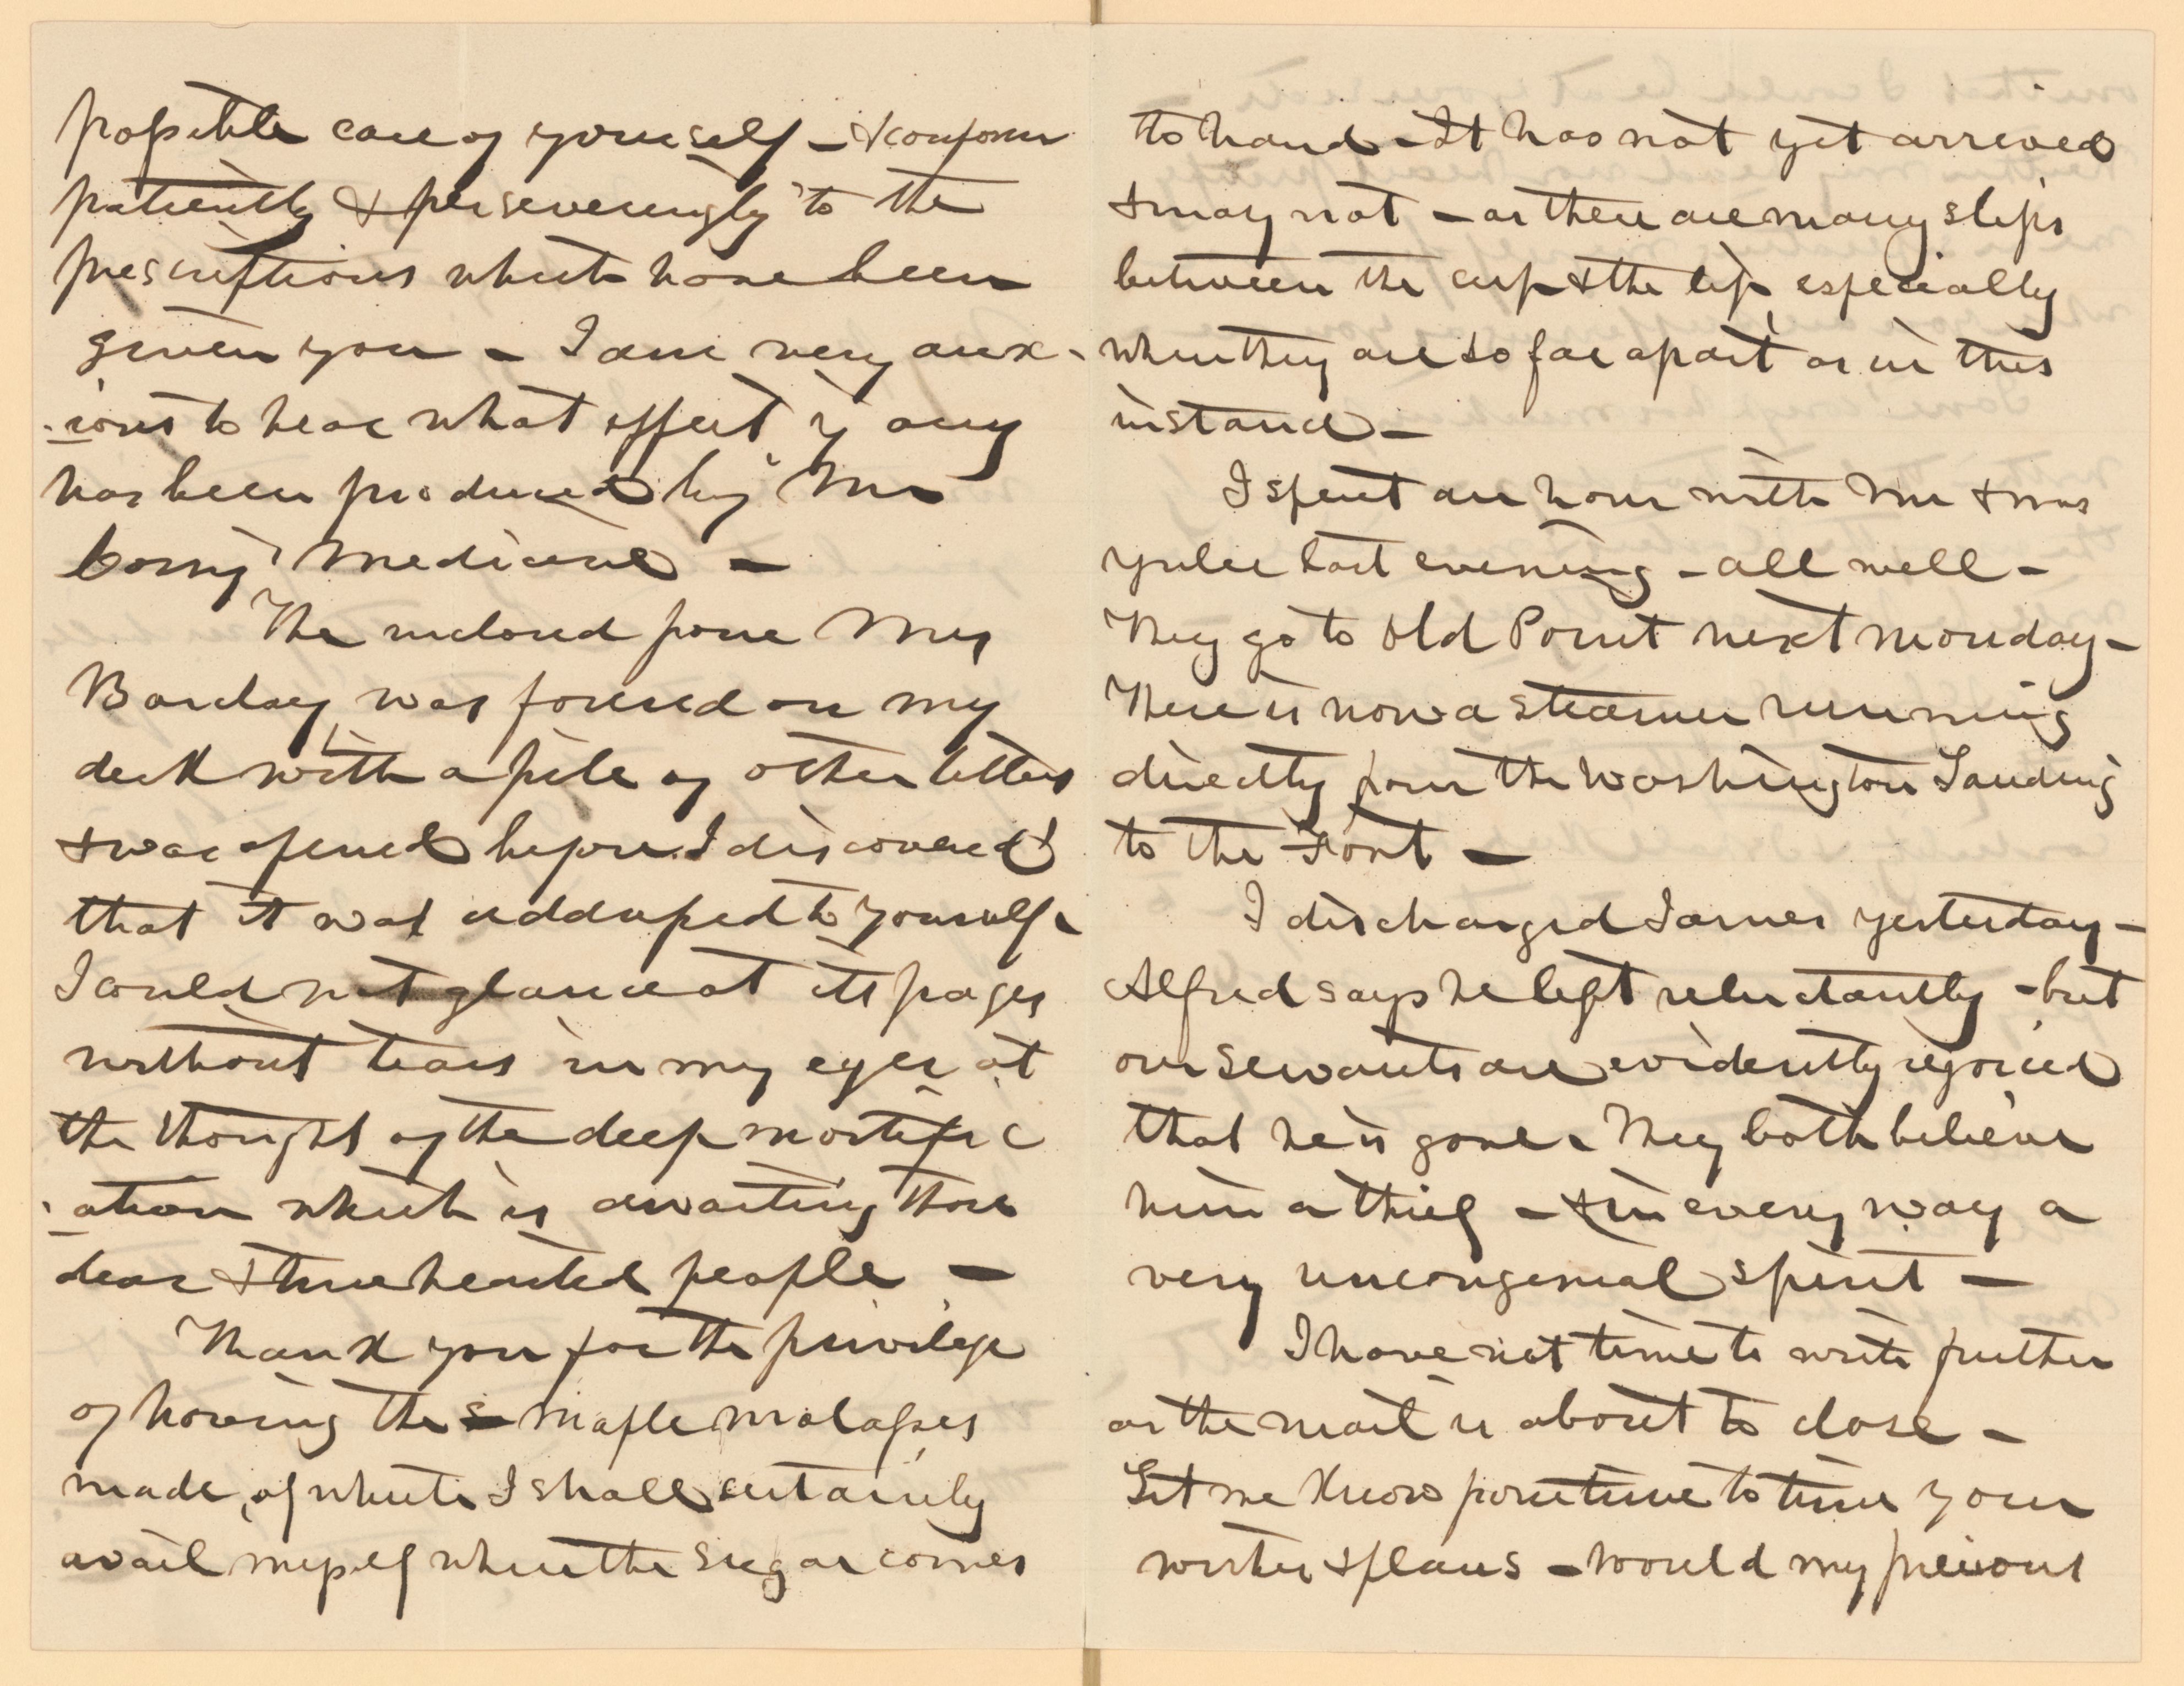 possible care of yourself - & conform
patiently & perseveringly to the
prescriptions which have been
given you - I am very anx-
-ious to hear what effect if any
has been produced by Mrs
medicine -
The inclosed from Mrs
Barclay was found on my
desk with a pile of other letters
& was opened before I discovered
that it was addressed to yourself -
I could not glance at its pages
without tears in my eyes at
the thought of the deep mortific
-ation which is awaiting those
dear & true hearted people -
Thank you for the privilege
of having the maple molasses
made, of which I shall certainly
avail myself when the sugar comes
to hand - It has not yet arrived
& may not - as there are many slips
between the cup & the lip, especially
when they are so far apart as in this
instance -
I spent an hour with Mr & Mrs
Yulee last evening - all well -
They go to Old Point next Monday -
There is now a steamer running
directly from the Washington Landing
to the Font -
I discharged James yesterday -
Alfred says he left reluctantly - but
our servants are evidently rejoiced
that he is gone. They both believe
him a thief - & in every way a
very uncongenial spirit -
I have not time to write further
as the mail is about to close -
Let me know from time to time your
wishes & plans - Would my precious